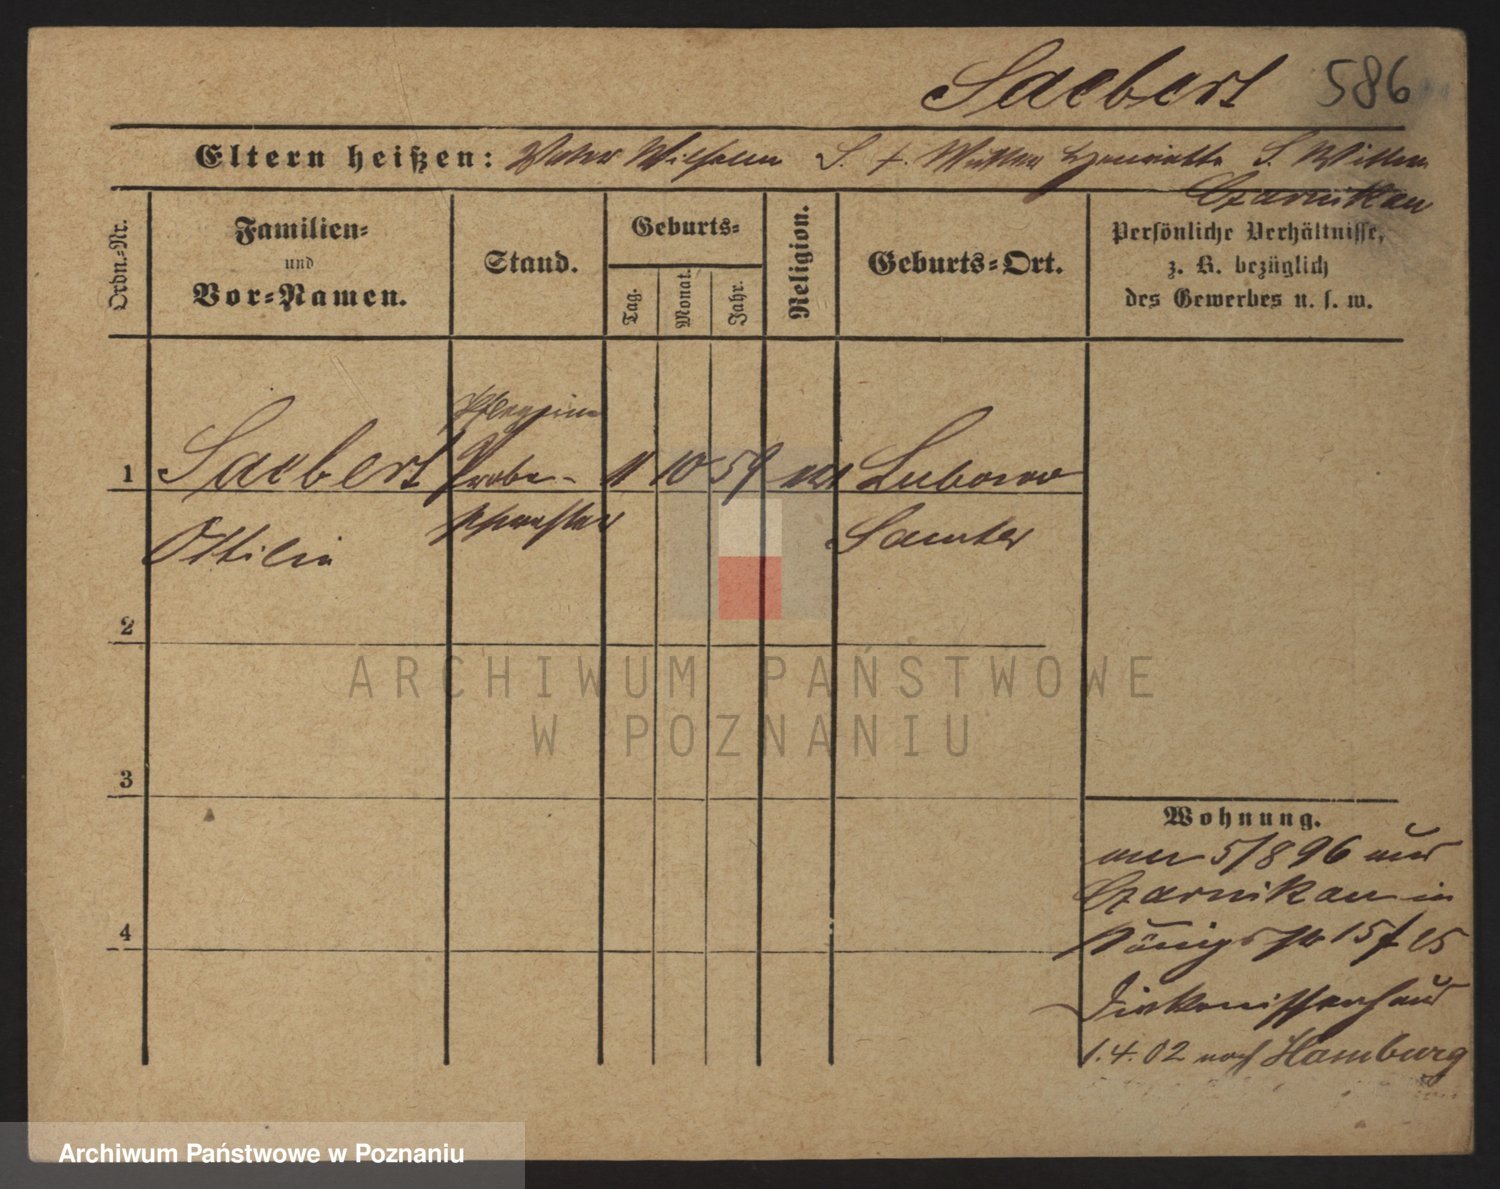 Saebert 586
Eltern heißen: Vater Wilhelm S. †. Mutter Henriette S. Witten
Czarnikau
Ordn.-Nr.
Familien-
und
Vor-Namen.
Stand.
Geburts-
Tag.
Monat.
Jahr.
Religion.
Geburts-Ort.
Persönliche Verhältnisse,
z. B. bezüglich
des Gewerbes u. s. w.
Pflegerin
1 Saebert Probe- 11 10 59 Lubowo
schwester Samter
Ottilie
2
3
4
Wohnung.
am 5/8 96 aus
Czarnikau in
Königsstr 15
Diakonissenhaus
1.4.02 nach Hamburg
ARCHIWUM PAŃSTWOWE
W POZNANIU
Archiwum Państwowe w Poznaniu